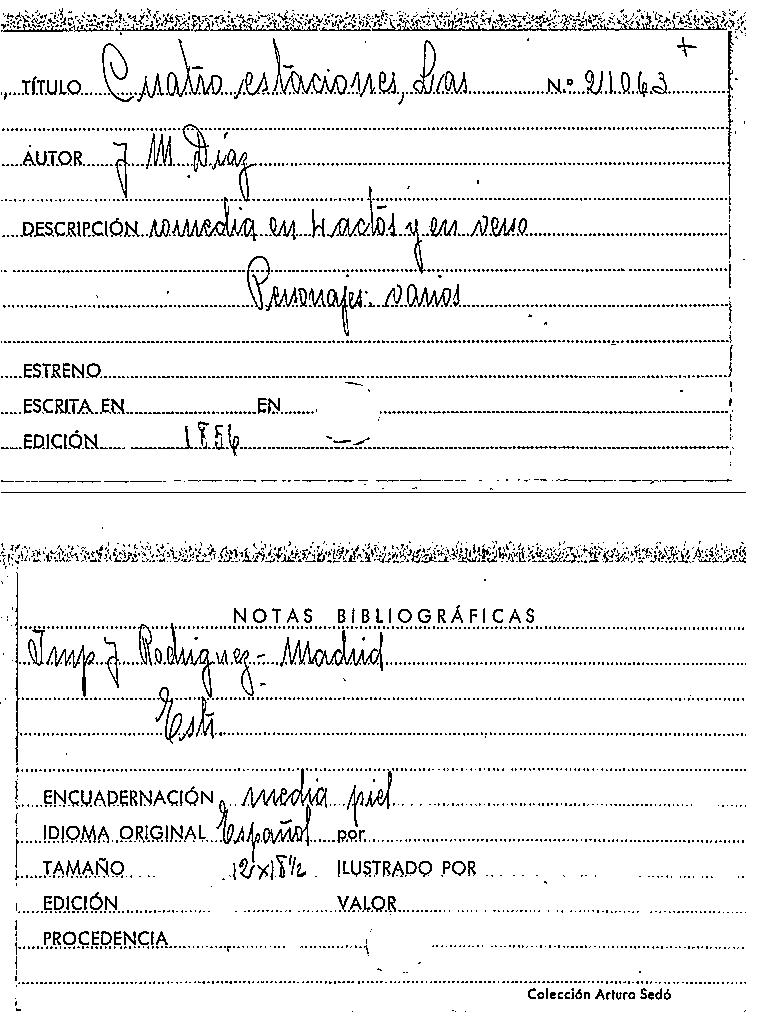 +
TÍTULO Cuatro estaciones, Las N.º 211063
AUTOR J M Díaz
DESCRIPCIÓN comedia en 4 actos y en verso
Personajes: varios
ESTRENO
ESCRITA EN EN
EDICIÓN 1856
NOTAS BIBLIOGRÁFICAS
Imp J Rodriguez - Madrid
Estr.
ENCUADERNACIÓN media piel
IDIOMA ORIGINAL Español por
TAMAÑO 12x18½ ILUSTRADO POR
EDICIÓN VALOR
PROCEDENCIA
Colección Arturo Sedó